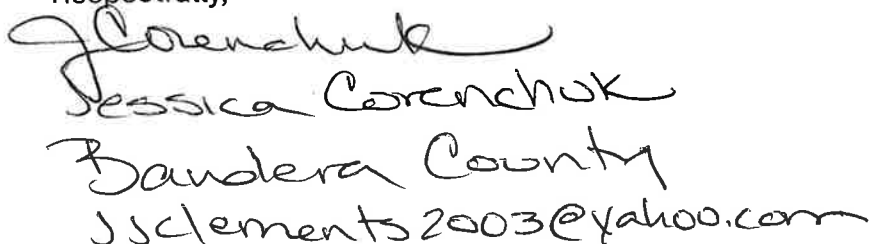 Respectfully,
J Corenchuk
Jessica Corenchuk
Bandera County
jjclements2003@yahoo.com